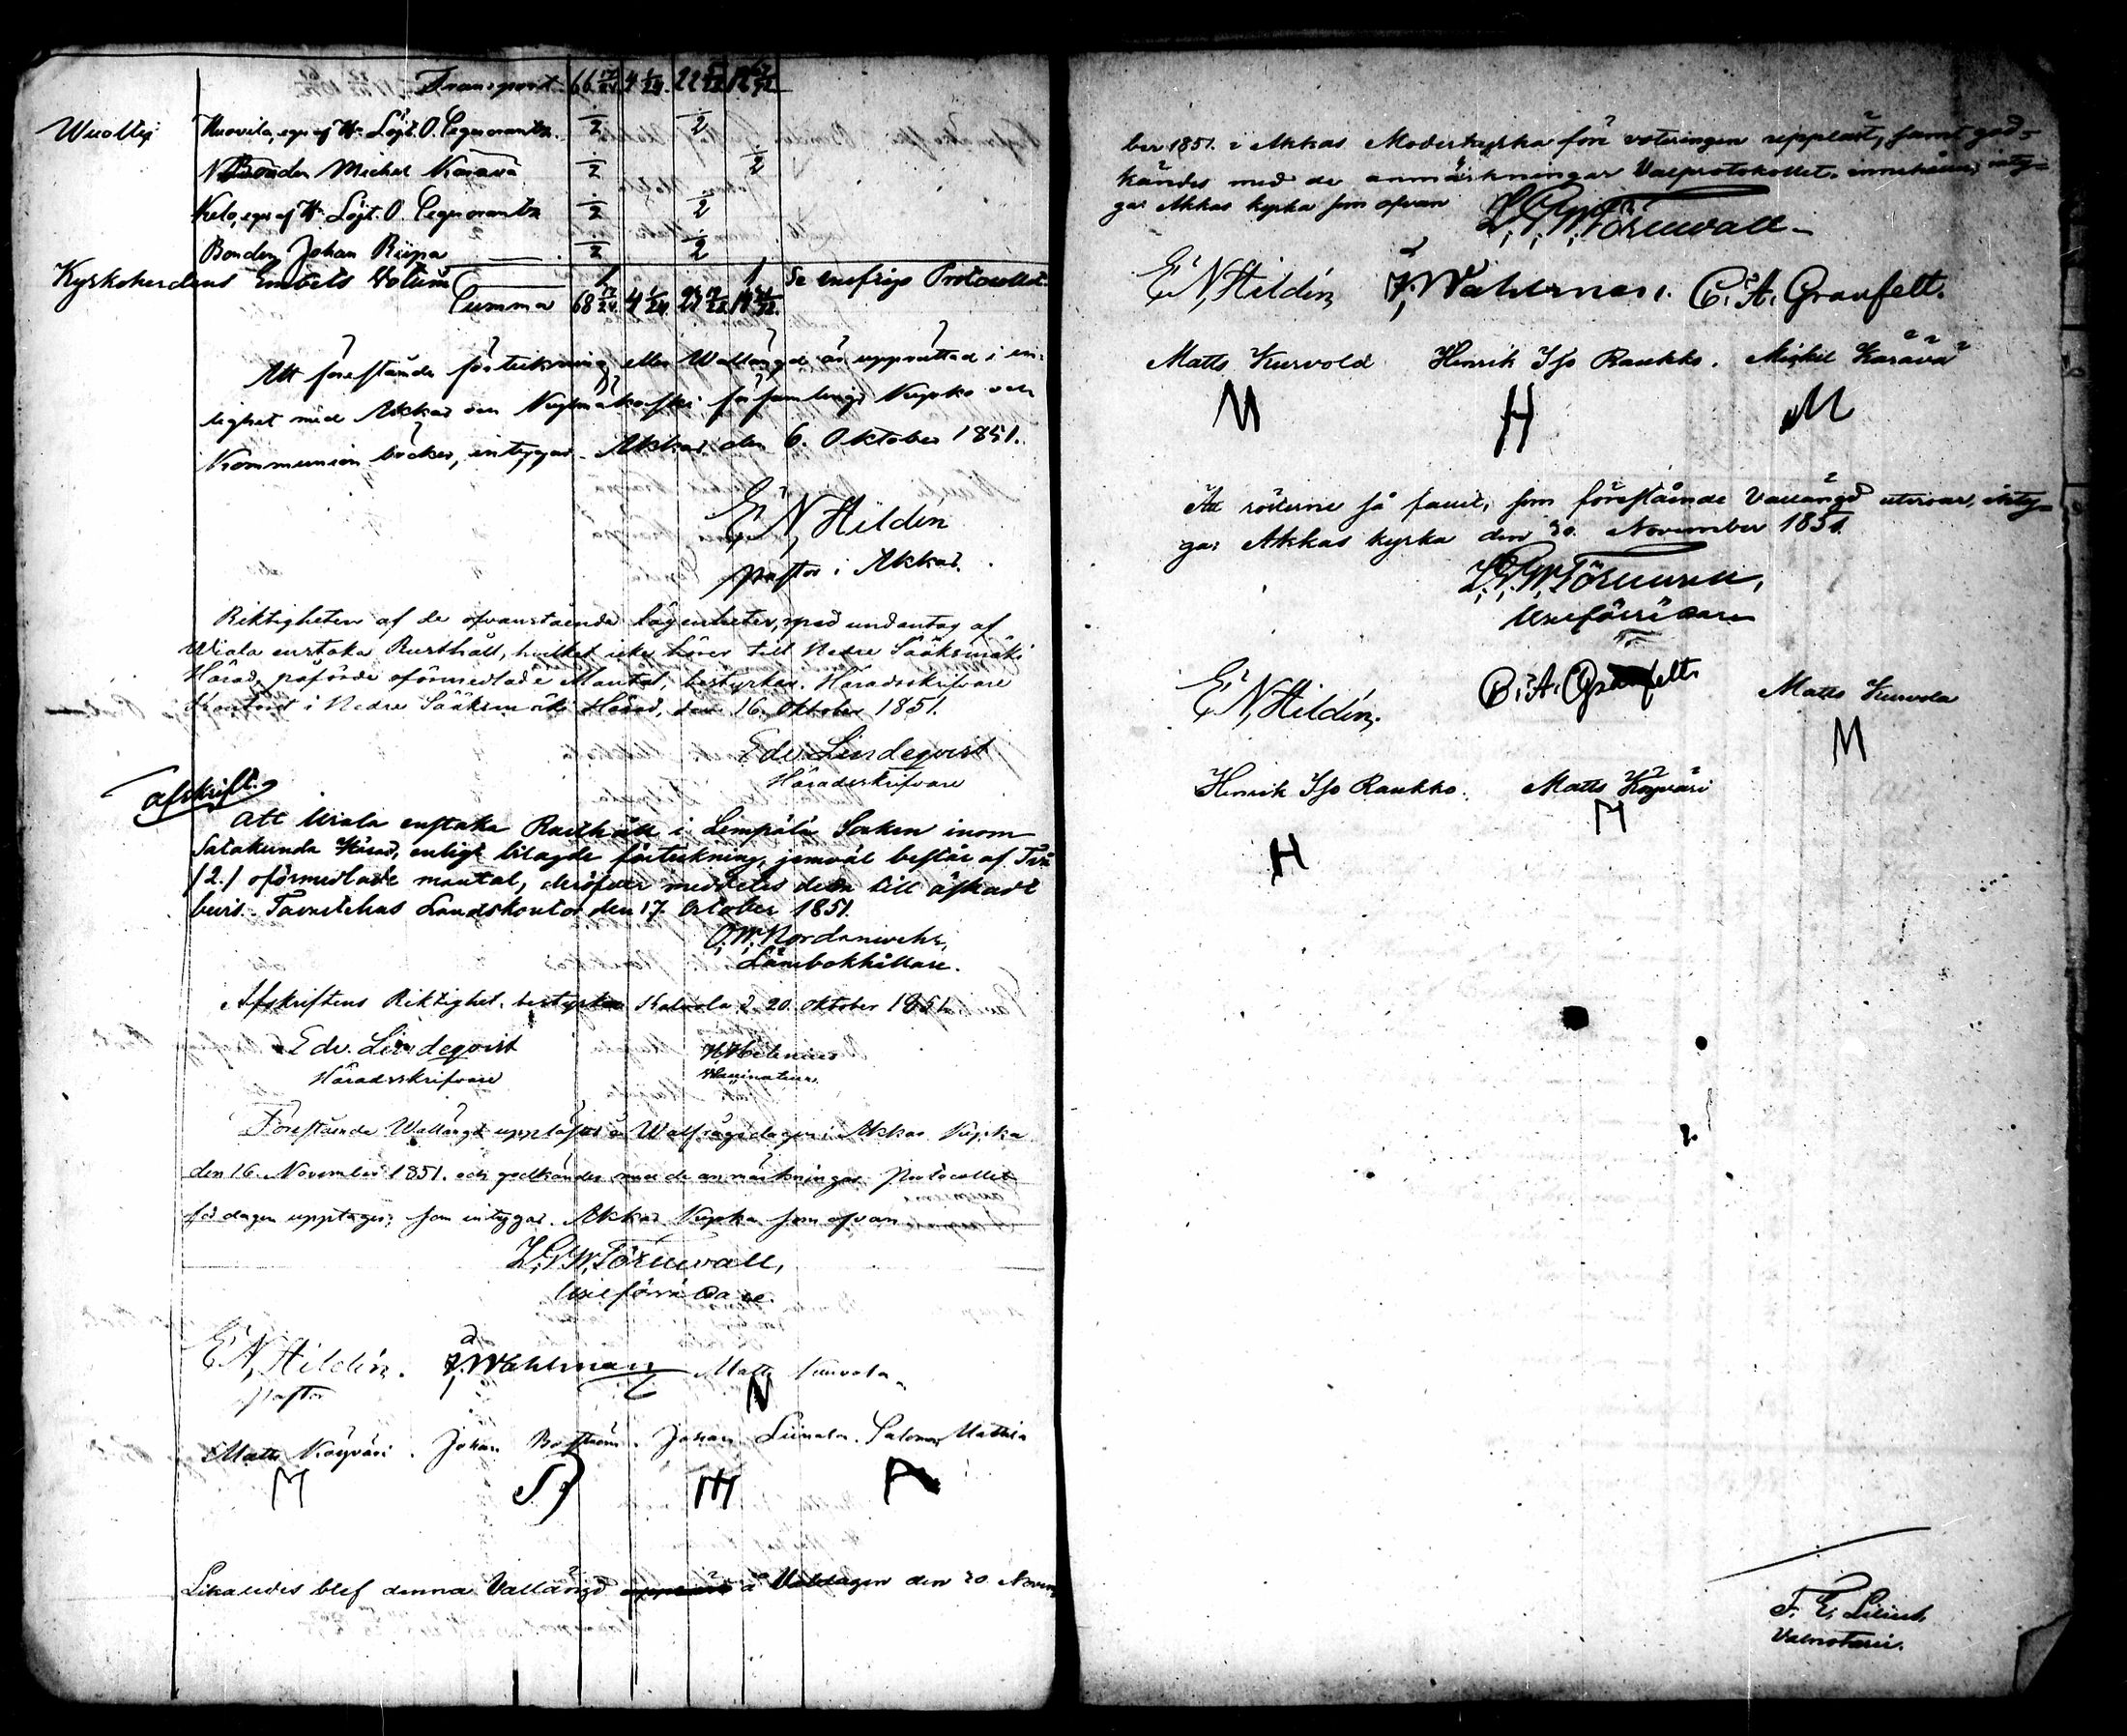 Transport 66 17/24 4 1/24
Wuolijoki Kuovila, eges af Hr Löjt. O. Pegnorantz. 1/2 1/2
Bonden Michel Karava 1/2 1/2
Kelo, eges af Hr Löjt. O. Pegnorantz 1/2 1/2
Bonden Johan Riepa 1/2 1/2
Kyrkoherdens Embets Votum 1 1 Se enefrågs Protocollet
Summa 68 17/24 4 1/24
Att förestånde förteckning eller Wallängd är upprättad i en-
lighet med Akkas och Kylmäkoski församlings Kyrko och
Kommunion böcker, intygar. Akkas den 6. Oktober 1851.
E. N. Hildén
pastor i Akkas.
Riktigheten af de ofvanstående lägenheter, med undantag af
Wiala enstaka Rusthåll, hvilket icke hörer till Nedre Sääksmäki
Härad, påförde oförmedlade Mantal, bestyrker. Häradsskrifvare
Kontoret i Nedre Sääksmäki Härad, den 16. Oktober 1851.
Edv. Lindeqvist
Häradsskrifvare
Afskrift.
Att Wiala enstaka Rusthåll i Lempälä Socken inom
Satakunda Härad, enligt bilagde förteckning, jemväl består af Två
/2./ oförmedlade mantal, deröfver meddelas detta till äskadt
bevis. Tavastehus Landskontor den 17. October 1851.
O. W. Nordenswehr,
Länsbokhållare.
Afskriftens Riktighet, bestyrka Kalvola d. 20. Oktober 1851.
Edv. Lindeqvist
Häradsskrifvare
H. Helenius
Förestående Wallängd upplästes å Walfrågedagen i Akkas Kyrka
den 16. November 1851. och godkändes med de anmärkningar Protocollet
för dagen upptager; som intygar. Akkas Kyrka som ofvan
L. G. W. Törnwall,
Valförrättare.
E. N. Hildén. J. Wahlman Matts Kurvola
pastor M
Matts Käyväri. Johan Boström. Johan Liinala. Salomon Mattila
M
Likaledes blef denna Vallängd å Valdagen den 30 Novem
ber 1851. i Akkas Moderkyrka före voteringen uppläst, samt god-
kändes med de anmärkningar Valprotokollet innehåller, inty-
gar Akkas kyrka som ofvan
L. G. W. Törnwall
E. N. Hildén J. Wahlman. C. A. Granfelt.
Matts Kurvola Henrik Iso Raukko. Mickel Karava
M H M
Att rösterne så fallit, som föreståinde Vallängd utvisar, inty-
gar Akkas kyrka den 30. November 1851.
L. G. W. Törnwall,
Valförrättare
E. N. Hildén. C. A. Granfelt Matts Kurvola
M
Henrik Iso Raukko. Matts Käyväri
H M
F. E. Lilius
Valnotarie.